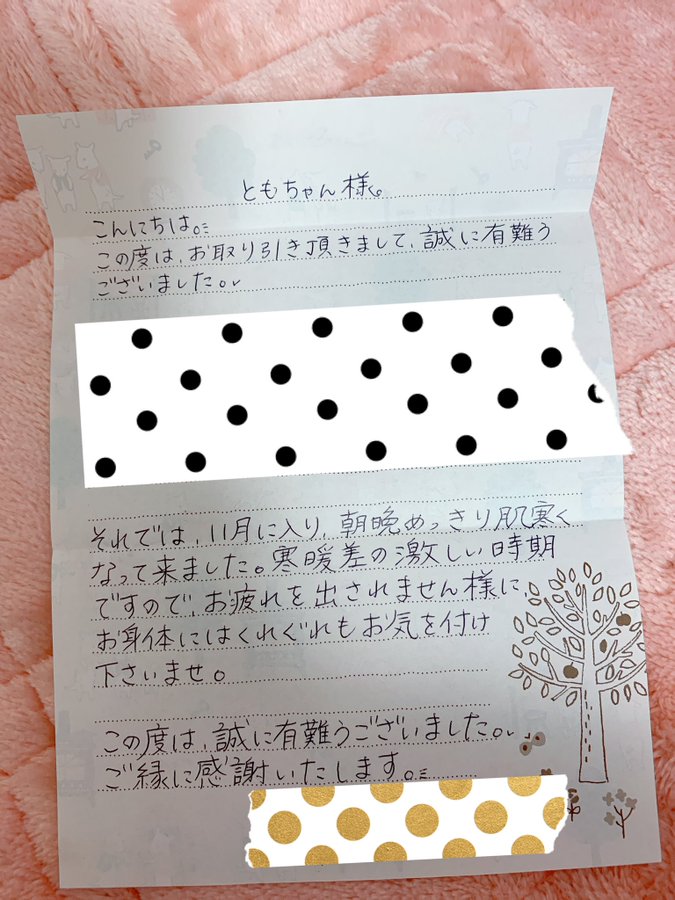 ともちゃん様。
こんにちは。
この度は、お取り引き頂きまして、誠に有難う
ございました。
それでは、11月に入り、朝晩めっきり肌寒く
なって来ました。寒暖差の激しい時期
ですので、お疲れを出されません様に、
お身体にはくれぐれもお気を付け
下さいませ。
この度は、誠に有難うございました。
ご縁に感謝いたします。